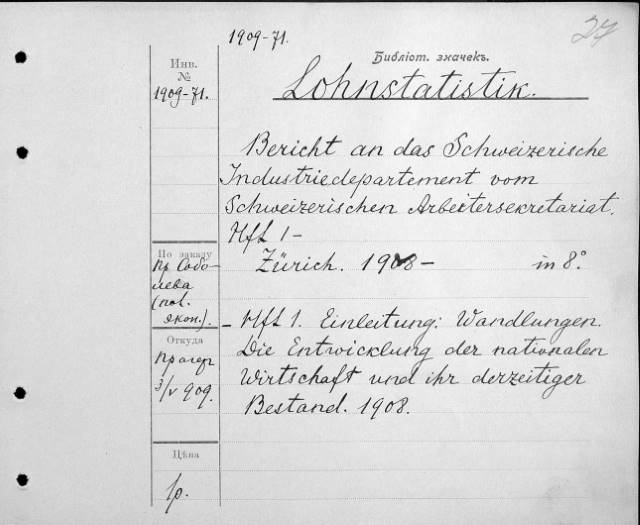 1909-71.
27
Библіот. значекъ.
Инв.
№
1909-71.
Lohnstatistik.
Bericht an das Schweizerische
Industriedepartement vom
Schweizerischen Arbeitersekretariat.
Hft 1-
Zürich. 1908- in 8°
По заказу
Пр. Собо-
лева
(пол.
экон.).
- Hft 1. Einleitung: Wandlungen.
Die Entwicklung der nationalen
Wirtschaft und ihr derzeitiger
Bestand. 1908.
Откуда
3/V 909.
Цѣна